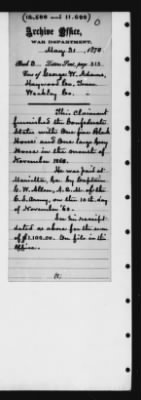 (10,500 and 11,600)
Archive Office,
WAR DEPARTMENT.
May 31, 1878
Book B. Letters Sent, page 213.
Case of George W. Adams,
Haywood Co., Tenn.
Weakley Co.
This Claimant
furnished the Confederate
States with One fine Black
Horse and One large bay
Horse in the month of
November 1863.
He was paid at
Marietta, Ga. by Captain
E. W. Allen, A. Q. M. of the
C. S. Army, on the 10th day
of November '63.
See his receipt
dated as above for the sum
of $1,100.00. On file in this
Office.